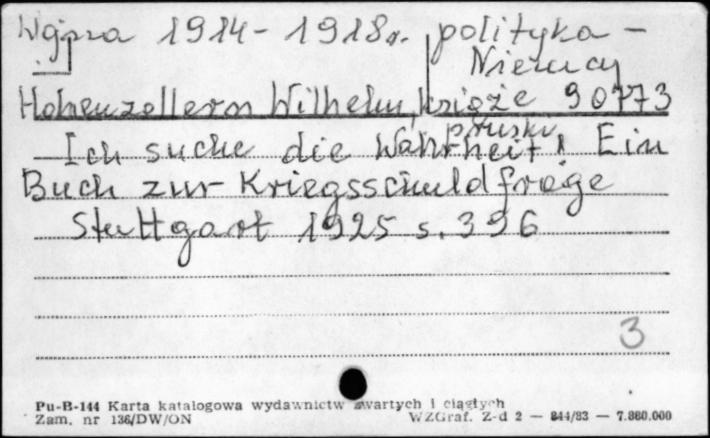 Wojna 1914-1918r. polityka -
Niemcy
Hohenzollern Wilhelm, książe 90773
pruski
Ich suche die Wahrheit! Ein
Buch zur Kriegsschuldfrage
Stuttgart 1925 s. 396
3
Pu-B-144 Karta katalogowa wydawnictw zwartych i ciągłych
Zam. nr 136/DW/ON WZGraf. Z-d 2 — 844/83 — 7.860.000